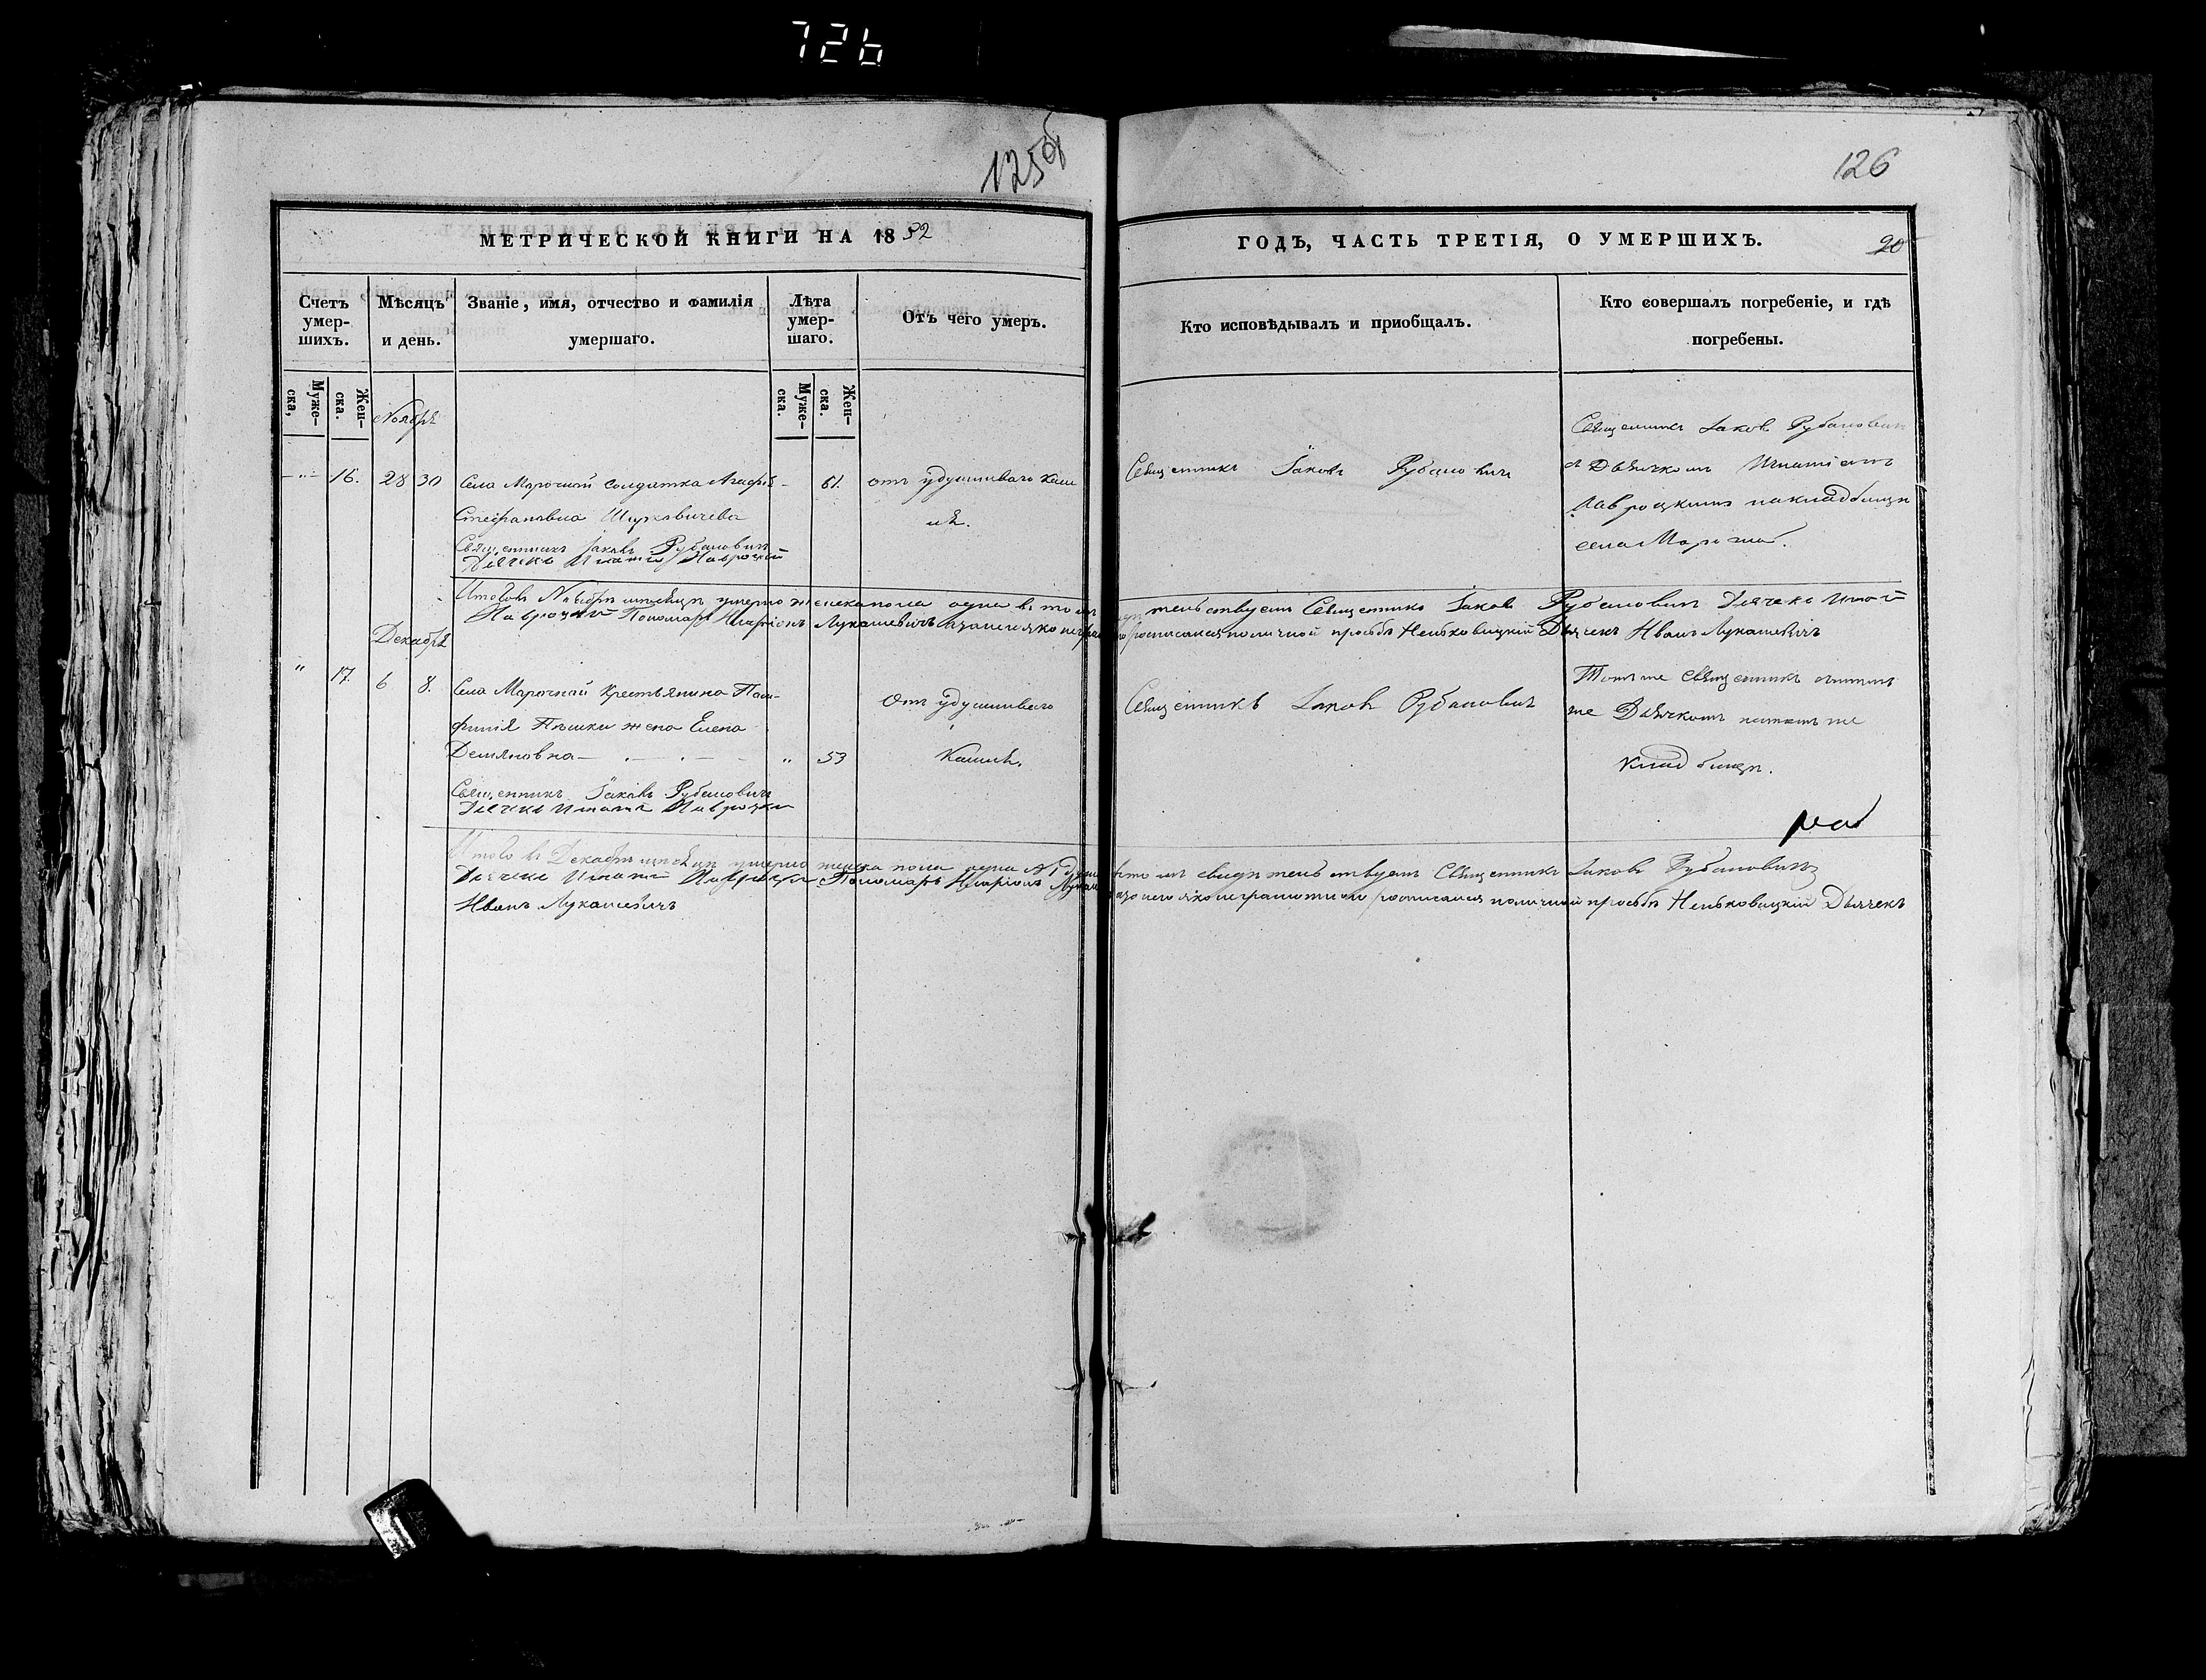 726
125об
126
МЕТРИЧЕСКОЙ КНИГИ НА 1852
ГОДЪ, ЧАСТЬ ТРЕТІЯ, О УМЕРШИХЪ.
20
Счетъ умер-шихъ.
Мѣсяцъ и день.
Званіе, имя, отчество и фамилія умершаго.
Лѣта умер-шаго.
Отъ чего умеръ.
Кто исповѣдывалъ и приобщалъ.
Кто совершалъ погребеніе, и гдѣ погребены.
Муже-ска,
Жен-ска.
Муже-ска.
Жен-ска.
Ноябрь
16. 28 30 Села Морочной солдатка Агафія 61. отъ удушливаго каш
Стефановна
ля.
Священникъ Іаковъ Рубановичъ
Дьячекъ Игнатій Лавроцкій
Священникъ Іаковъ Рубановичъ
Священникъ Іаковъ Рубановичъ
съ Дьячкомъ Игнатіемъ
Лавроцкимъ на кладбищѣ
села
Итого въ Ноябрѣ мѣсяцѣ умерло женска пола одна въ томъ
тельствуемъ Священникъ Іаковъ Рубановичъ Дьячекъ
Лавроцкій Пономарь Иларіонъ Лукашевичъ а за него яко
росписался по личной просьбѣ Неньковицкій Дьячекъ Иванъ Лукашевичъ
Декабрь
" 17. 6 8. Села Морочной крестьянина
жена Елена
Демяновна " 53
Отъ удушливаго
кашля.
Священникъ Іаковъ Рубановичъ
Дьячекъ Игнатій Лавроцкій
Священникъ Іаковъ Рубановичъ
Тотъ же священникъ съ тѣмъ
же Дьячкомъ на томъ же
кладбищѣ.
Итого въ Декабрѣ мѣсяцѣ умерло женска пола одна
томъ свидѣтельствуемъ Священникъ Іаковъ Рубановичъ
Дьячекъ Игнатій Лавроцкій Пономарь Иларіонъ
а за него яко неграмотнаго росписался по личной просьбѣ Неньковицкій Дьячекъ
Иванъ Лукашевичъ